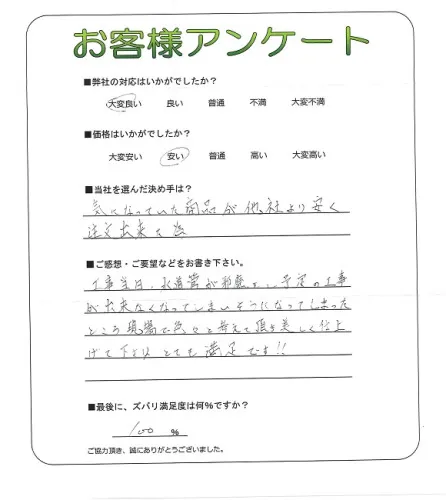 お客様アンケート
■弊社の対応はいかがでしたか？
大変良い 良い 普通 不満 大変不満
■価格はいかがでしたか？
大変安い 安い 普通 高い 大変高い
■当社を選んだ決め手は？
気になっていた商品が他社より安く
注文出来た為
■ご感想・ご要望などをお書き下さい。
工事当日、水道管が邪魔をし予定の工事
が出来なくなってしまいそうになってしまった
ところ現場で色々と考えて頂き美しく仕上
げて下さり とても満足です!!
■最後に、ズバリ満足度は何%ですか？
100 %
ご協力頂き、誠にありがとうございました。